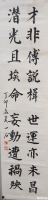 才非傅說楫世運亦未昌
潛光且竢命妄動遭禍殃